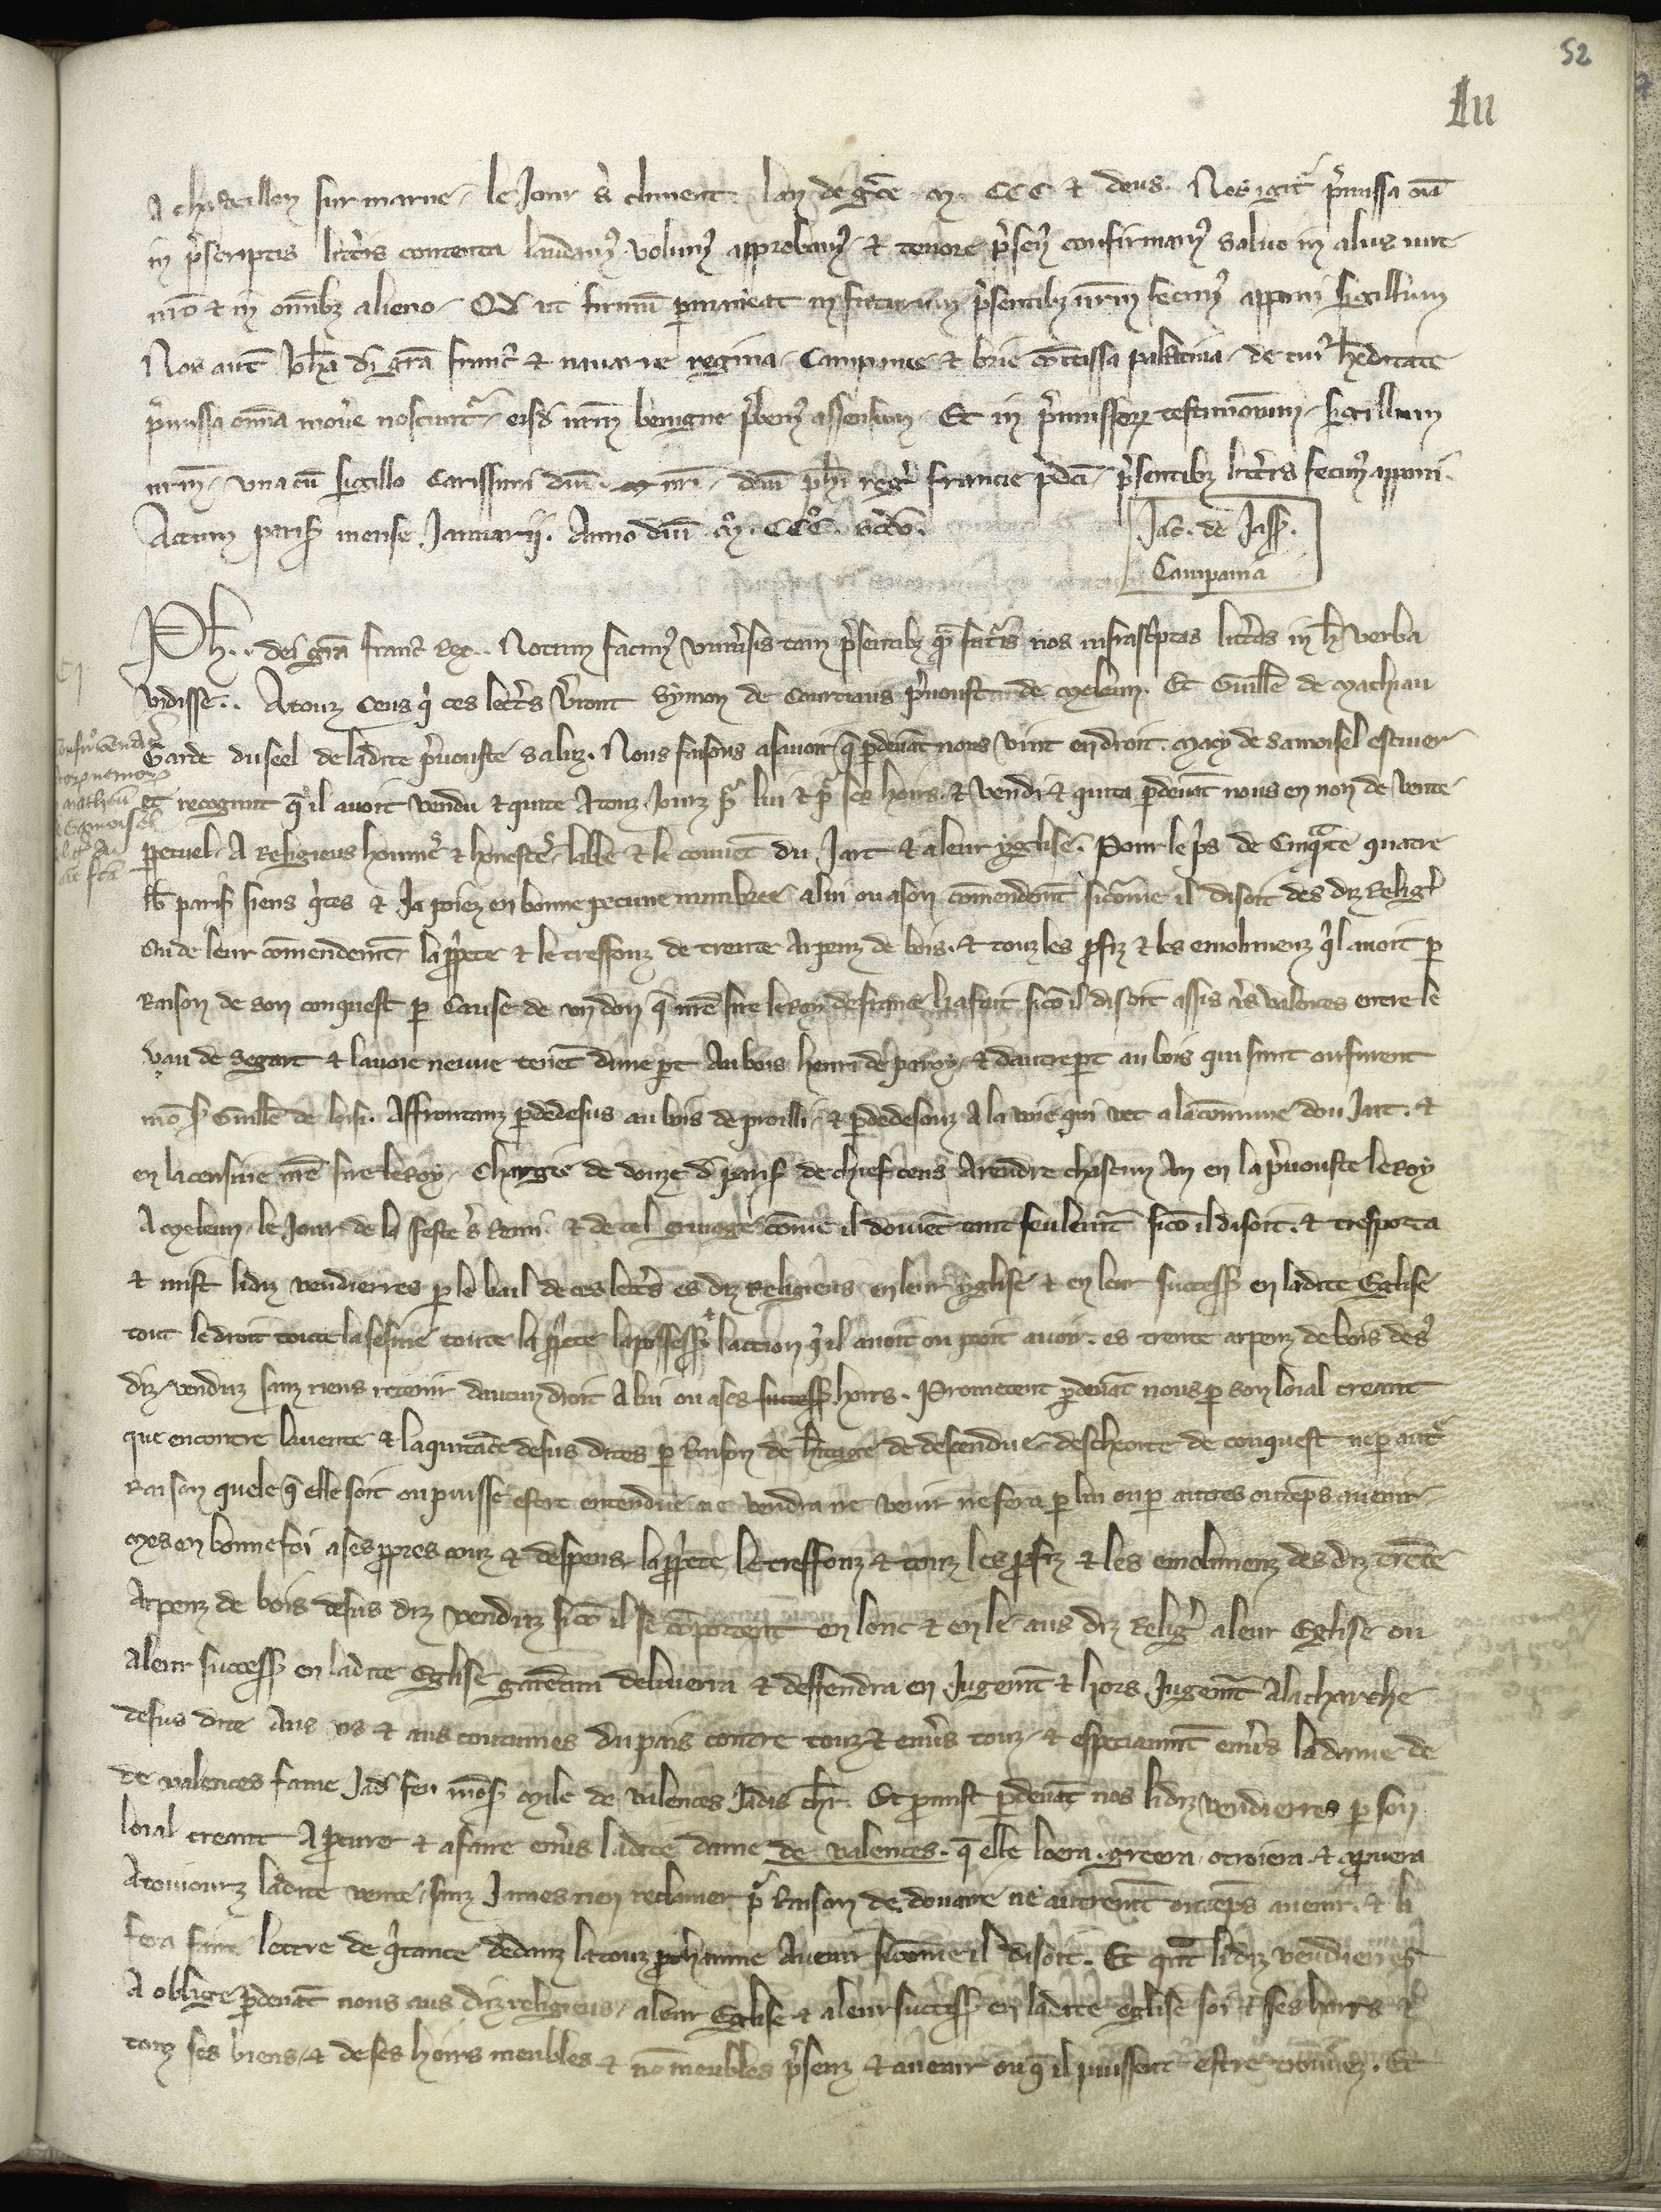 52
LII
A chasteillon sur marne le Jour s̃ climent lan de gr̃ce m. CCC et deus. Nos igit̃ p̃missa oĩa
in p̃scriptis litt̃is contenta laudam9 volum9 approbam9 et tenore p̃sen9 confirmam9 salvo in aliis iure
nr̃o et in om̃ibz alieno. Qd̃ ut firmũ p̃maneat in futurum p̃sentibz nr̃m fecim9 apponi sigillum
Nos aut̃ Joh̃a di gr̃a franc̃ et navarre regina Campanie et brie com̃tissa palatina de cui9 h̃editate
p̃missa om̃ia move noscunt̃ eisd̃ nr̃m benigne p̃bem9 assensum. Et in p̃missorz testimonium sigillum
nr̃m una cũ sigillo Carissimi dñi nr̃i dñi ph̃i reg̃ francie p̃dc̃i p̃sentibz litt̃is fecim9 apponi.
Actum paris̃ mense Januarij. Anno dñi mº. CCCº. scd̃o.
Jac. de Jass̃.
Campania
Ph̃.. dei gr̃a franc̃ Rex.. Notum facim9 uniṽsis tam p̃sentibz q̃ fut̃is nos infrasc̃ptas litt̃as in h̃ verba
vidisse.. Atouz Ceus q̃ ces lett̃s v̾ront Symon de Courceaus p̃voust de Meleun. Et Guill̃e de Machiau
Garde du seel de ladite p̃vouste saluz. Nous faisons asavoir q̃ p̃devãt nous vint en droit. Macy de Samoisel escuier
et recognut q̃ il avoit vendu et quite A touz Jourz p̃ lui et p̃ ses hoirs. et vendi et quita p̃devãt nous en non de vente
p̃petuel A Religieus hommes et honestes labbe et le covẽt du Jart et a leur yglise. Pour le p̃s de Cinq̃te quatre
lb̃ paris̃ siens q̃tes et Ja poiez en bonne pecune numbree a lui ou a son com̃endem̃t sicõme il disoit des diz Relig̃
Ou de leur com̃endem̃t la p̃p̃ete et le tressonz de trente Arpenz de bois. et touz les p̃fiz et les emolumenz q̃l avoit p̃
Raison de son conquest p̃ Cause de un don q̃ nr̃e sire le Roy de france li a fait sicõ il disoit assis v̾s valences entre le
vau de segart et la voie neuve tenẽt dune p̃t Au bois henri de paroy et dautre p̃t au bois qui sunt ou furent
mõs̃ Guill̃e de lisi. Affrontanz p̃ dedesus au bois de proilli et p̃ dedesouz A la voie qui vet a la cõmune dou Jart. et
en la censive nr̃e sire le Roy. Chargie de douze d̃ paris̃ de chief cens Arendre chascun An en la p̃vouste le Roy
A Meleun le Jour de la feste s̃ Remi et de tel gruage cõme il doivẽt tant seulem̃t sicõ il disoit. et tresporta
et mist lidiz vendierres p̃ le bail de ces lett̃s es diz Religieus en leur yglise et en leur success̃ en ladite Eglise
tout le droit toute la sesine toute la p̃p̃ete la possess̃ et laction q̃ il avoit ou poit avoir. es trente arpenz de bois des9
diz venduz sanz riens retenir daucun droit A lui ou a ses success̃ hoirs. Prometent p̃devãt nous p̃ son loial creant
que encontre la vente et la quitãce desus dites p̃ Raison de h̃itage de descendue descheoite de conquest ne p̃ aut̃
Raison quele q̃ elle soit ou puisse estre entendue ne vendra ne venir ne fera p̃ lui ou p̃ autres ou tẽps avenir
Mes en bonne foi a ses p̃pres couz et despens la p̃p̃ete le tressonz et touz les p̃fiz et les emolumenz des diz trẽte
Arpenz de bois desus diz venduz sicõ il se cõportent en lonc et en le aus diz Relig̃ a leur Eglise ou
A leur success̃ en ladite Eglise garẽtira delivrera et deffendra en Jugem̃t et hors Jugem̃t A la charche
desus dite Aus us et aus coutumes du pais contre touz et env̾s touz et especiaum̃t env̾s la dame de
de valences fame Jad̃ feu mõs̃ Mile de valences Jadis ch̃r. Et p̃mist p̃devãt nos lidiz vendierres p̃ son
loial creant A p̃curer et a faire env̾s ladite dame de valences. q̃ elle loera. greera otroiera et ap̃uvera
A toujourz ladite vente sanz James rien reclamer p̃ Raison de douaire ne autrem̃t ou tẽps avenir. et li
fera faire lettre de q̃tance dedanz la touz p̃chainne Avenir sicõme il disoit. Et quãt lidiz vendierres
A oblige p̃devãt nous aus diz religieus a leur Eglise et a leur success̃ en ladite eglise soi et ses hoirs et
touz ses biens et de ses hoirs meubles et nõ meubles p̃senz et avenir ou q̃ il puissent estre trouvez. Et